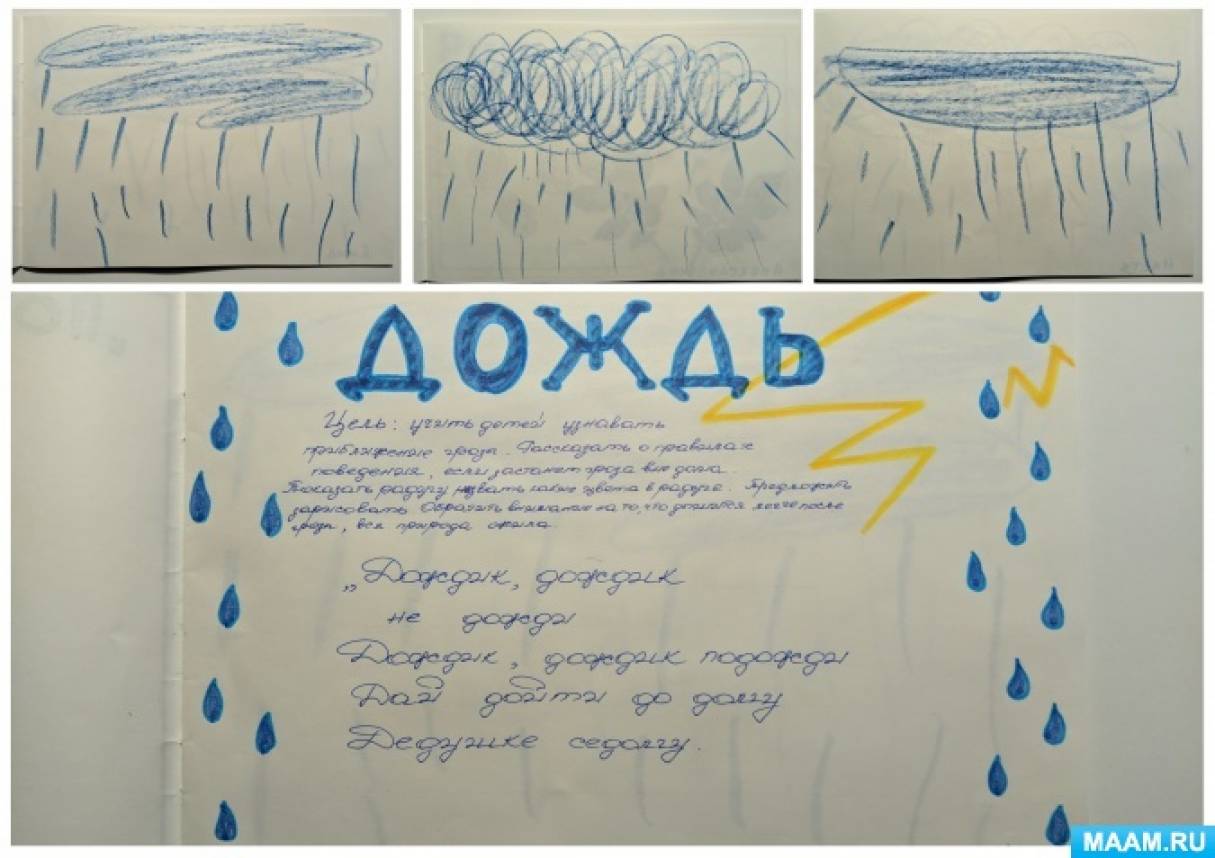 ДОЖДЬ
Цель: учить детей узнавать
приближение грозы. Рассказать о правилах
поведения, если застанет гроза вне дома.
Показать радугу назвать какие цвета в радуге. Предложить
зарисовать. Обратить внимание на то, что дышится легче после
грозы, вся природа ожила.
„Дождик, дождик
не дожди
Дождик, дождик подожди
Дай дойти до дому
Дедушке седому.
MAAM.RU